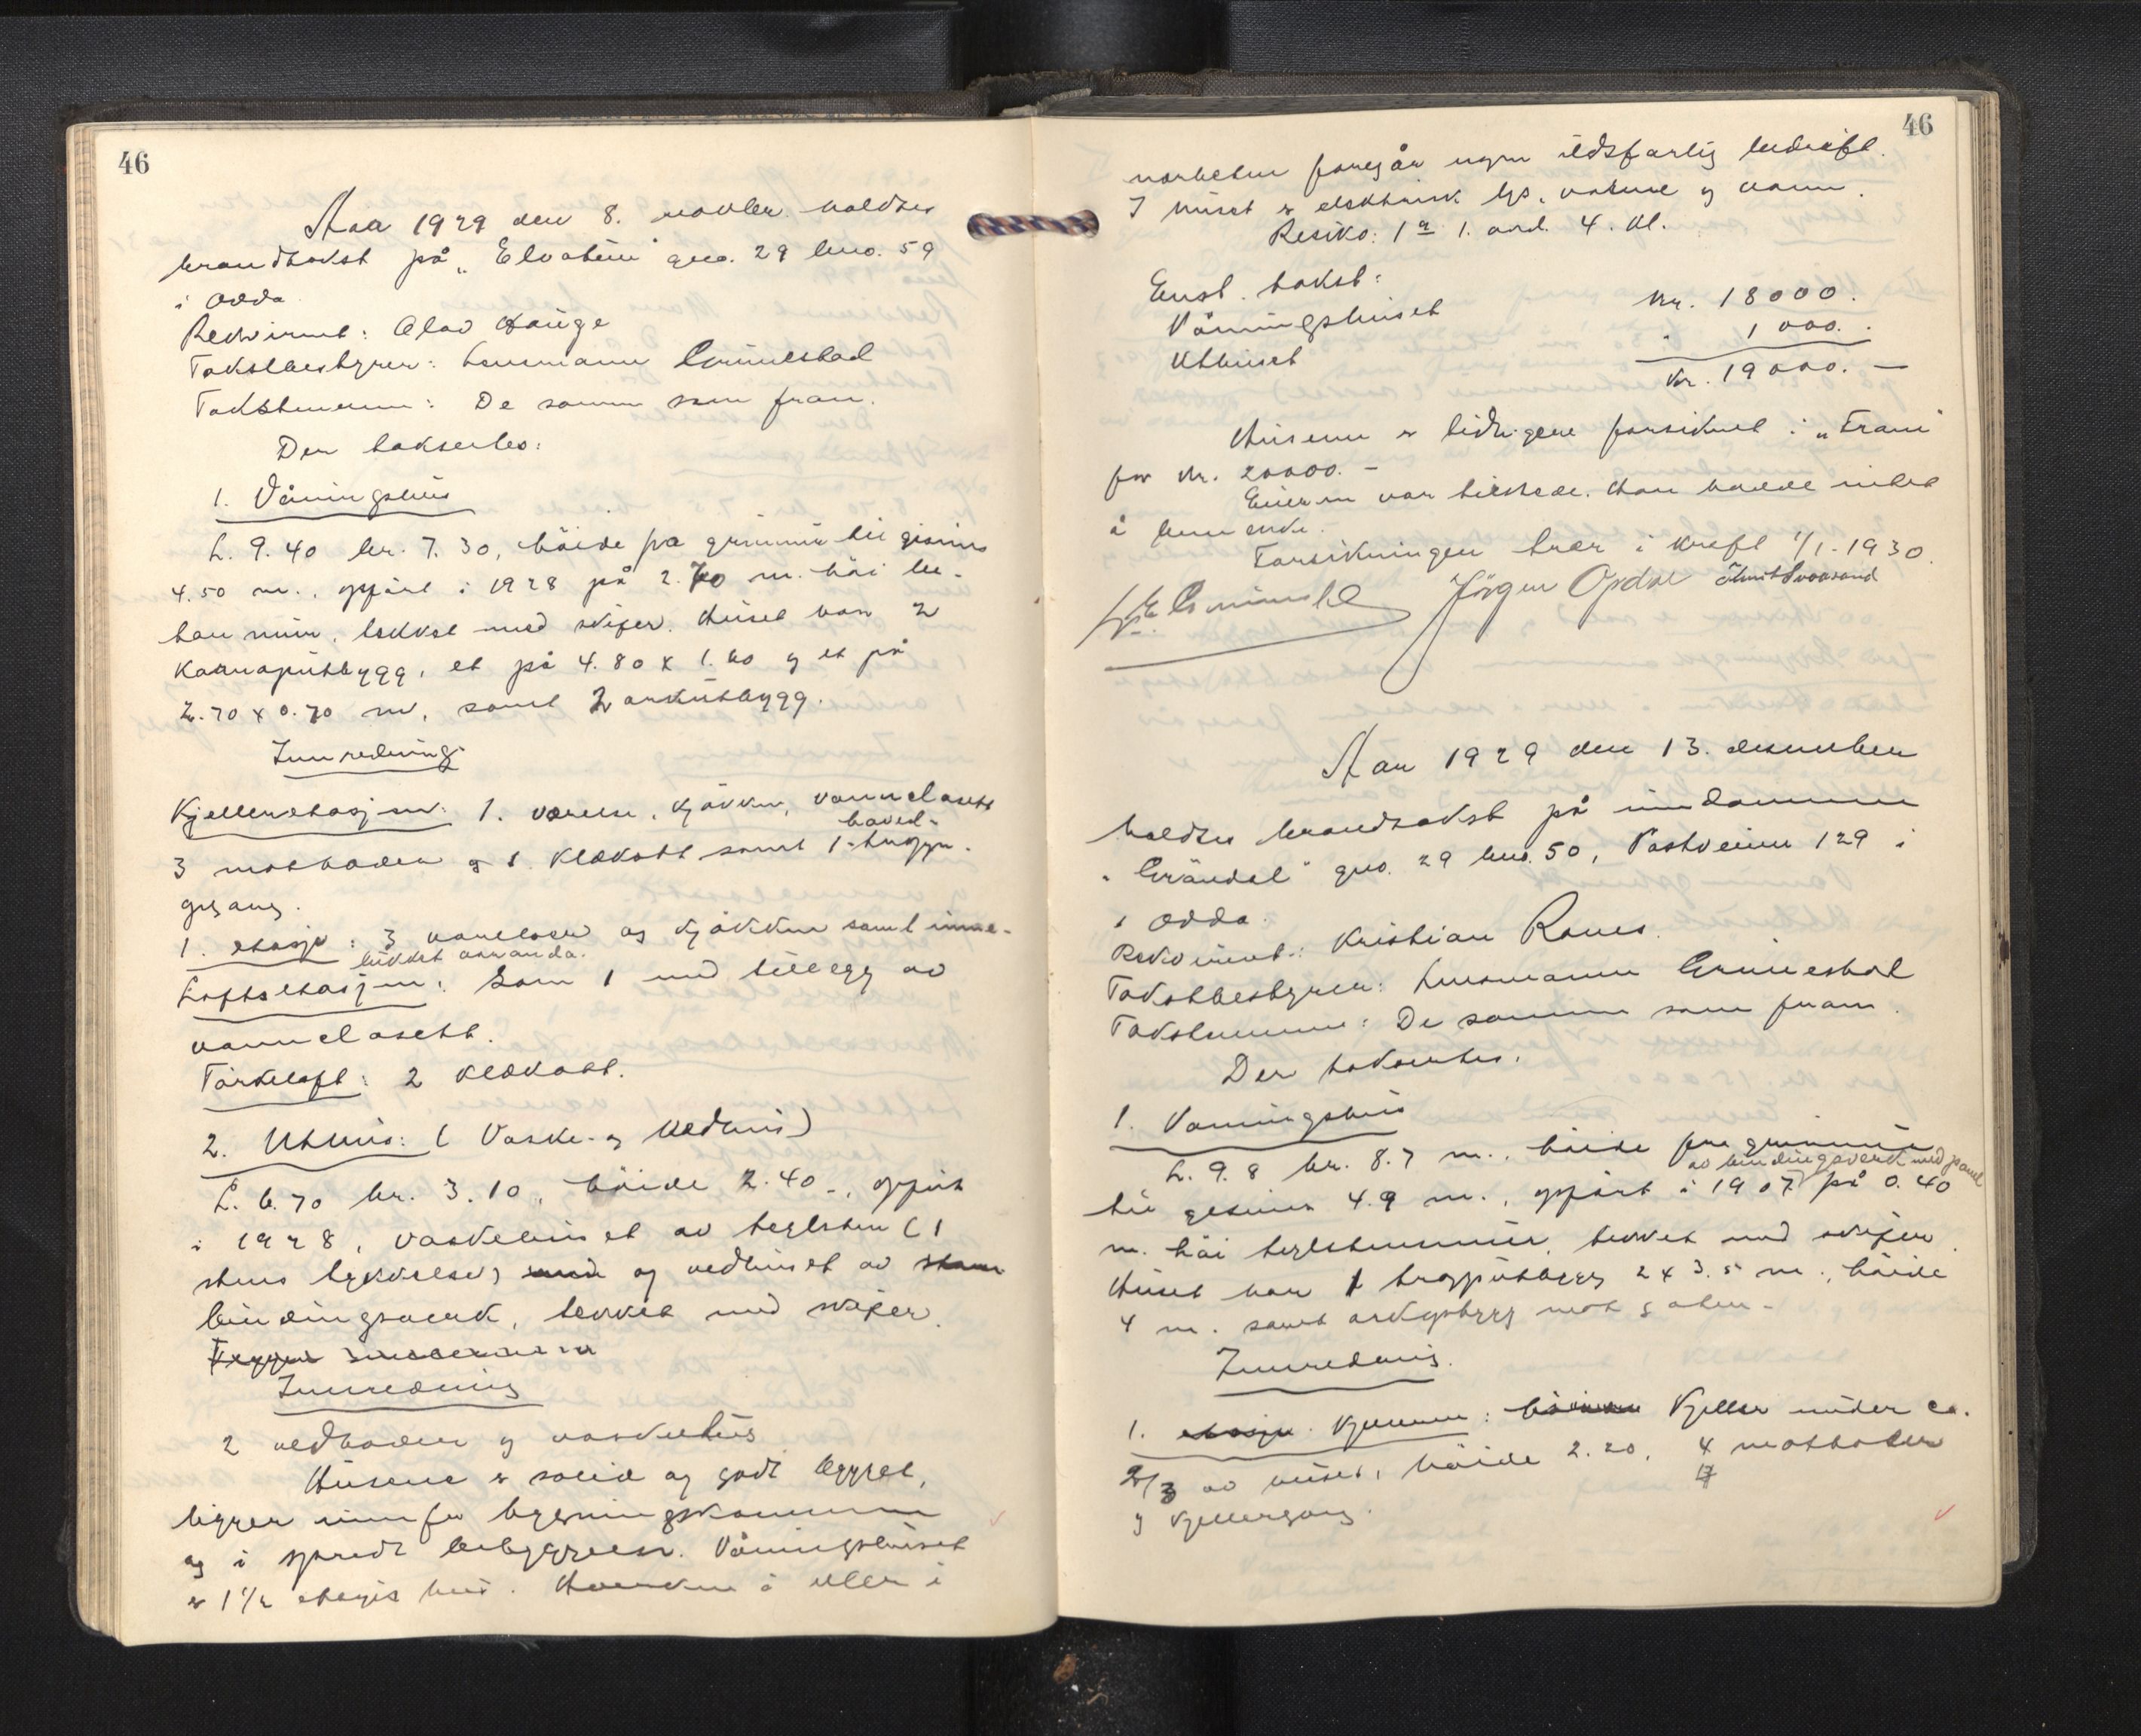 46
Aar 1929 den 8. novbr. holdtes
brandtakst på „Elvatun" gno. 29 bno. 59
i Odda
Rekvirent: Olav Hauge
Takstbestyrer: Lensmann Grimestad
Takstmenn: De samme som fran.
Der taksertes:
1. Våningshus
L. 9.40 br. 7.30, höide fra grunnmur til gesims
4.50 m., opført i 1928 på 2.70 m. höi be-
ton mur, tekket med skifer. Huset har 2
karnaputbygg, et på 4.80 x 1.60 og et på
2.70 x 0.70 m, samt 2 arkutbygg.
Innredning
Kjelleretasjen: 1. værelse, kjökken, vannclosett
3 matboder og 1 klækott samt 1 hoved-
trappe-
gang.
1. etasje: 3 værelser og kjökken samt inne-
lukket veranda.
Loftsetasjen: Som 1 med tillegg av
vannclosett.
Törkeloft: 2 klækott.
2. Uthus: (Vaske- og Vedhus)
L. 6.70 br. 3.10, höide 2.40 -, opført
i 1928, vaskehuset av teglsten (1
stens tykkelse) og vedhuset av
bindingsverk, tekket med skifer.
Innredning
2 vedboder og vaskehus
Husene er solid og godt bygget,
ligger innfor bygningskommunen
og i spredt bebyggelse. Våningshuset
er 1 1/2 etages hus. Hverken i eller i
46
nærheten foregår nogen ildsfarlig bedrift.
I huset er elektrisk lys, varme og vann.
Resiko: 1a 1. avd. 4. kl.
Enst. takst:
Våningshuset kr. 18000.
Uthuset " 1000.
Kr. 19000. —
Husene er tidligere forsikret i „Fram"
for kr. 20000. -
Eieren var tilstede. Han hadde intet
å bemerke.
Forsikringen trær i kraft 1/1-1930.
Grimestad Jörgen Opdal
Aar 1929 den 13. desember
holdtes brandtakst på eiendommen
„Gröndal" gno. 29 bno. 50, Postveien 129 i
i Odda.
Rekvirent: Kristian Raunes.
Takstbestyrer: Lensmann Grimestad
Takstmenn: De samme som fram.
Der taksertes:
1. Vaningshus
L. 9.8 br. 8.7 m., höide fra grunnmur
av bindingsverk med panel
til gesims 4.9 m., opført i 1907 på 0.40
m. höi teglstensmur, tekket med skifer.
Huset har 1 trapputbygg 2 x 3.5 m., höide
4 m. samt arkopbygg mot gaten.
Innredning.
1. etasje. Kjelleren: Kjeller under ca.
2/3 av huset, höide 2.20, 4 matboder
og kjellergang.